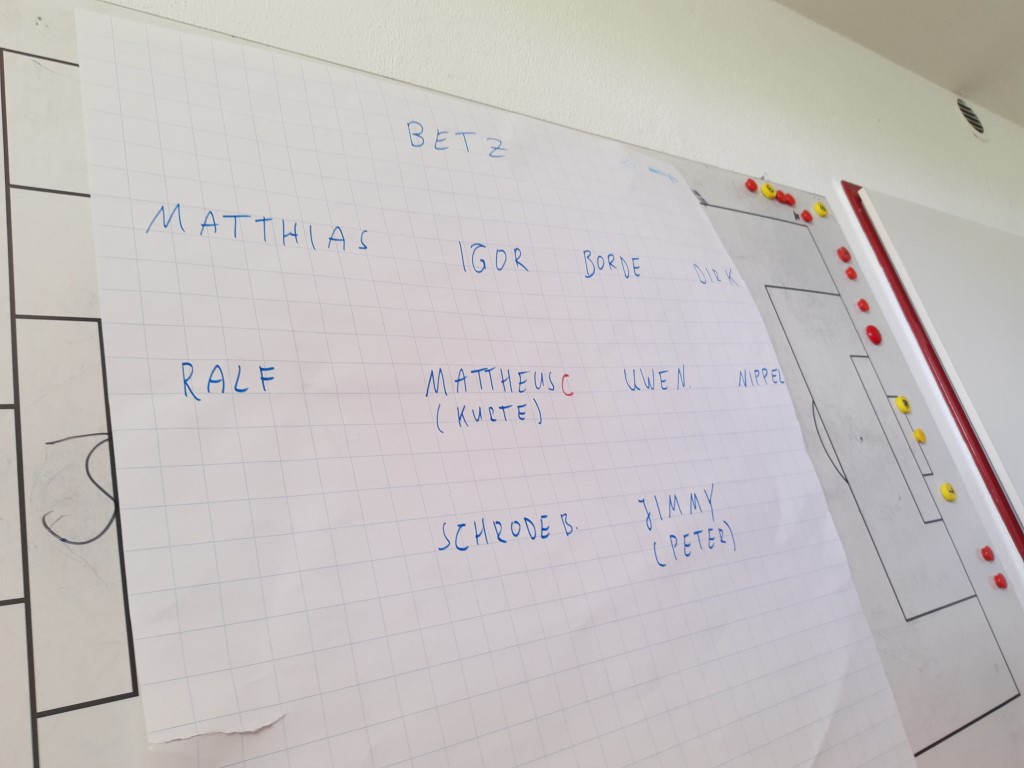 BETZ
MATTHIAS IGOR BORDE DIRK
RALF MATTHEUS C UWE N. NIPPEL
(KURTE)
SCHRODE B. JIMMY
(PETER)